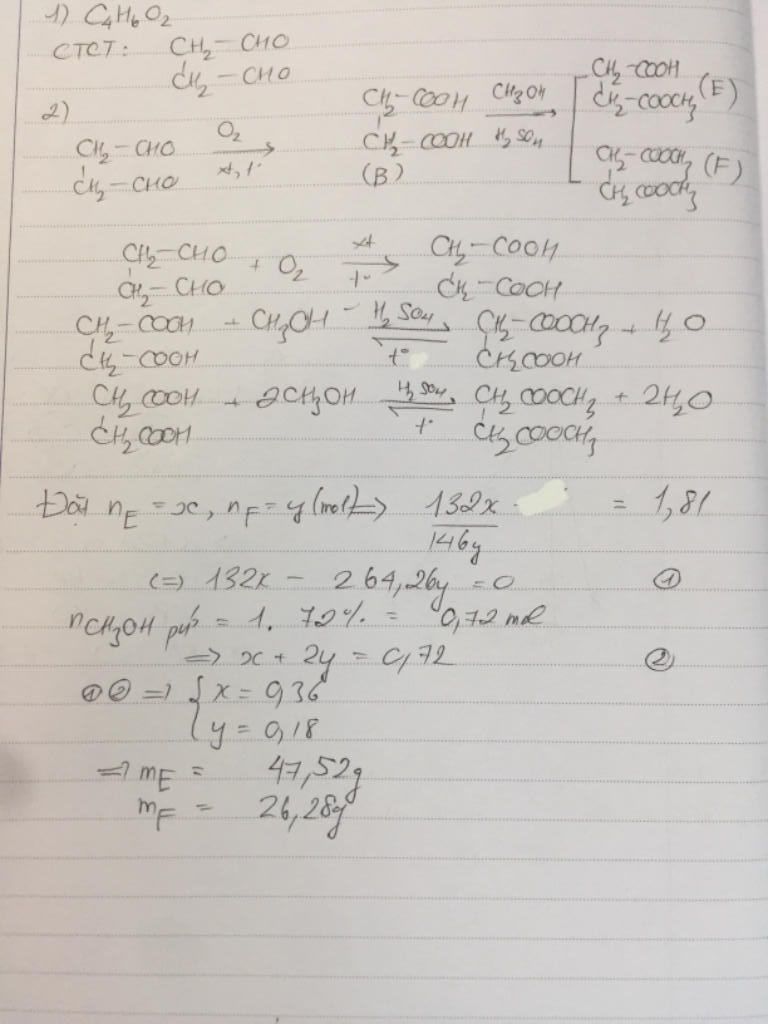 1) C4H6O2
CTCT: CH2-CHO
CH2-CHO
2)
CH2-CHO O2 CH2-COOH CH3OH CH2-COOH
CH2-CHO xt, t° CH2-COOH H2SO4 CH2-COOCH3 (E)
(B) CH2-COOCH3 (F)
CH2COOCH3
CH2-CHO + O2 xt CH2-COOH
CH2-CHO t° CH2-COOH
CH2-COOH + CH3OH H2SO4 CH2-COOCH3 + H2O
CH2-COOH t° CH2COOH
CH2COOH + 2CH3OH H2SO4 CH2COOCH3 + 2H2O
CH2COOH t° CH2COOCH3
Đặt nE = x, nF = y (mol) => 132x = 1,81
146y
(=) 132x - 264,26y = 0 ①
nCH3OH pứ = 1. 72% = 0,72 mol
=> x + 2y = 0,72 ②
① ② => { x = 0,36
y = 0,18
=> mE = 47,52g
mF = 26,28g